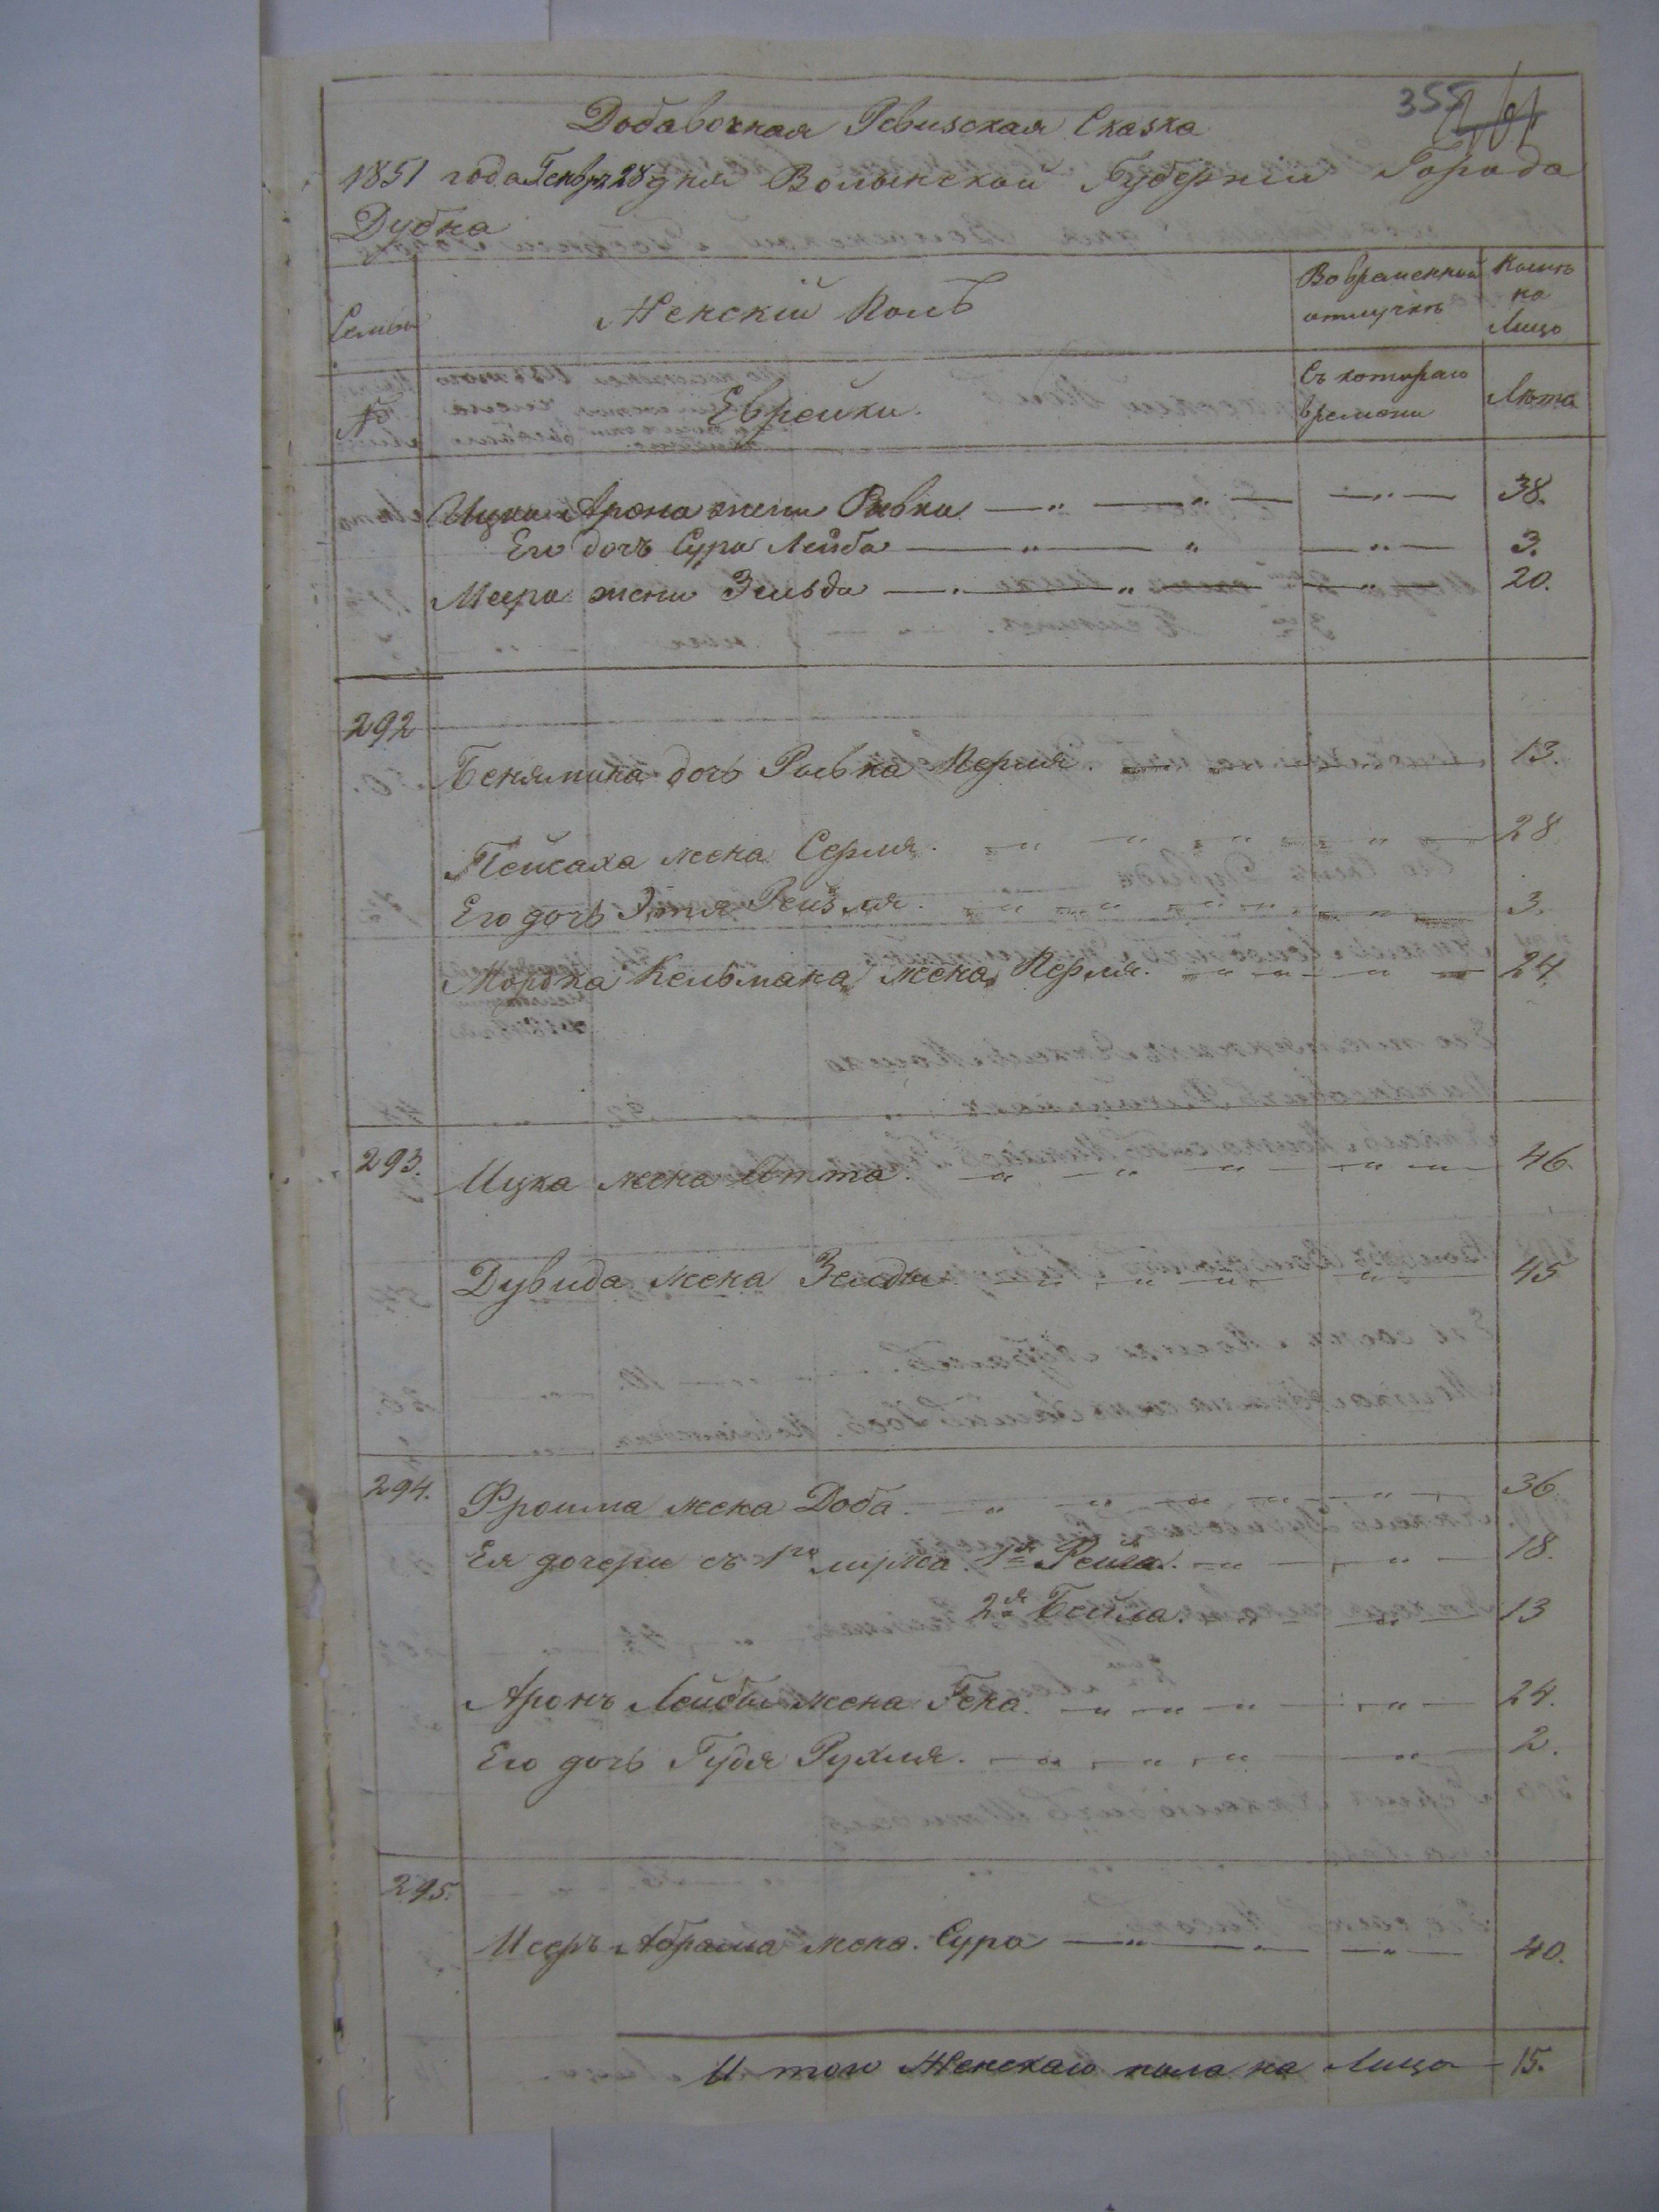 355
Добавочная Ревизская Сказка
1851 года Генвр. 28 дня Волынской Губернии Города
Дубна
Семьи Женскій Полъ Во временной отлучкѣ Нынѣ на Лицо
№ Еврейки. Съ котораго времени Лѣта
Ицка Арона жена Ривка 38.
Его дочь Сура Лейба 3.
Меера жена Зельда 20.
292
Бенямина дочь Ривка Перля. 13.
Пейсаха жена Серля. 28
Его дочь Этя Рейзля. 3.
Мордка Кельмана жена Перля. 24.
293. Ицка жена Итта. 46.
Дувида жена Зелда. 45
294. Фроима жена Доба. 36
Ея дочери съ 1го мужа 1я Рейза. 18.
2я Бейла. 13
Аронъ Лейбы жена Гена. 24.
Его дочь Гудя Рухля. 2.
295.
Исеръ Абрама жена. Сура 40.
Итого Женскаго пола на Лицо 15.